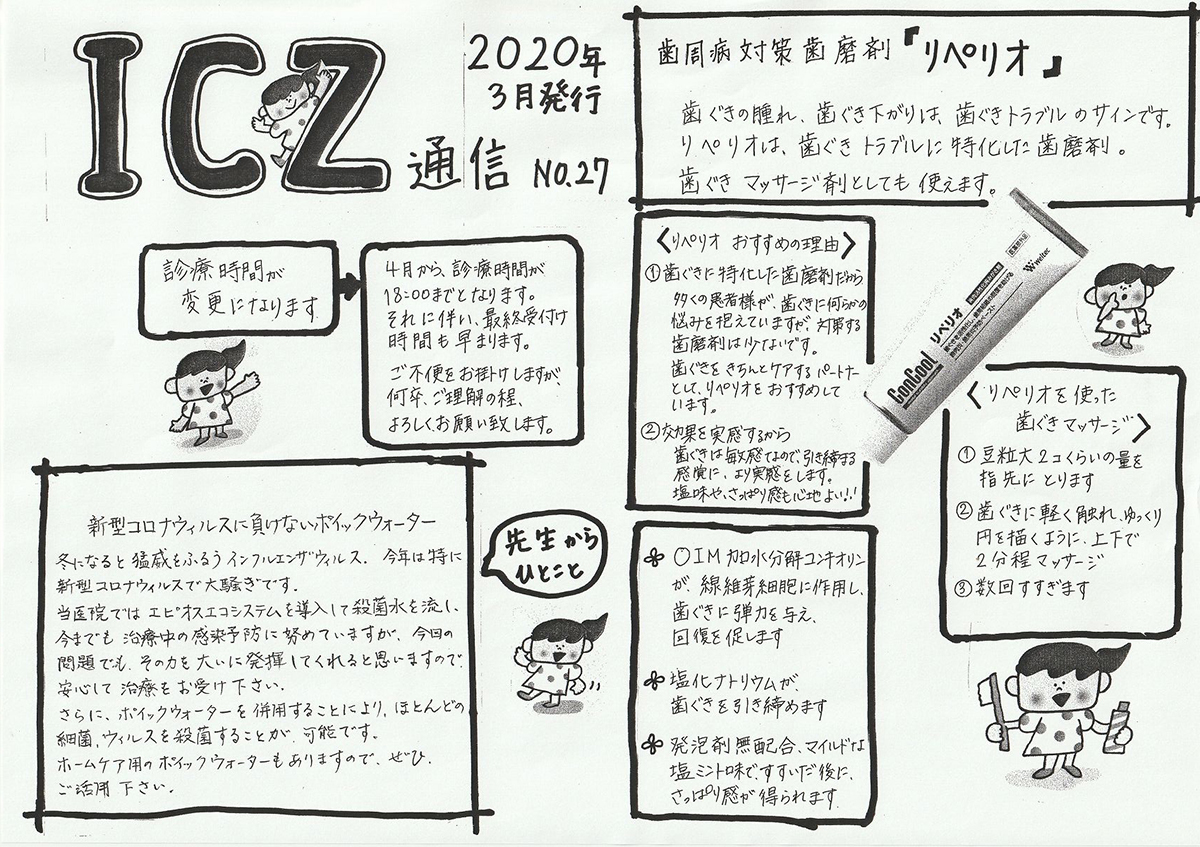 ICZ
通信 NO.27
2020年
3月発行
診療時間が
変更になります
4月から、診療時間が
18:00までとなります。
それに伴い、最終受付け
時間も早まります。
ご不便をお掛けしますが、
何卒、ご理解の程、
よろしくお願い致します。
新型コロナウィルスに負けないポイックウォーター
冬になると猛威をふるうインフルエンザウィルス。今年は特に
新型コロナウィルスで大騒ぎです。
当医院ではエピオスエコシステムを導入して殺菌水を流し、
今までも治療中の感染予防に努めていますが、今回の
問題でも、その力を大いに発揮してくれると思いますので、
安心して治療をお受け下さい。
さらに、ポイックウォーターを併用することにより、ほとんどの
細菌、ウィルスを殺菌することが可能です。
ホームケア用のポイックウォーターもありますので、ぜひ、
ご活用下さい。
先生から
ひとこと
歯周病対策歯磨剤『リペリオ』
歯ぐきの腫れ、歯ぐき下がりは、歯ぐきトラブルのサインです。
リペリオは、歯ぐきトラブルに特化した歯磨剤。
歯ぐきマッサージ剤としても使えます。
〈リペリオ おすすめの理由〉
①歯ぐきに特化した歯磨剤だから
多くの患者様が、歯ぐきに何らかの
悩みを抱えていますが、対策する
歯磨剤は少ないです。
歯ぐきをきちんとケアするパートナー
として、リペリオをおすすめして
います。
②効果を実感するから
歯ぐきは敏感なので引き締まる
感覚に、より実感をします。
塩味や、さっぱり感も心地よい!!
ConCool リペリオ
Weltec
医薬部外品
○IM加水分解コンキオリン
が、線維芽細胞に作用し、
歯ぐきに弾力を与え、
回復を促します
塩化ナトリウムが、
歯ぐきを引き締めます
発泡剤無配合、マイルドな
塩ミント味ですすいだ後に、
さっぱり感が得られます
〈リペリオを使った
歯ぐきマッサージ〉
①豆粒大2コくらいの量を
指先にとります
②歯ぐきに軽く触れ、ゆっくり
円を描くように、上下で
2分程マッサージ
③数回すすぎます